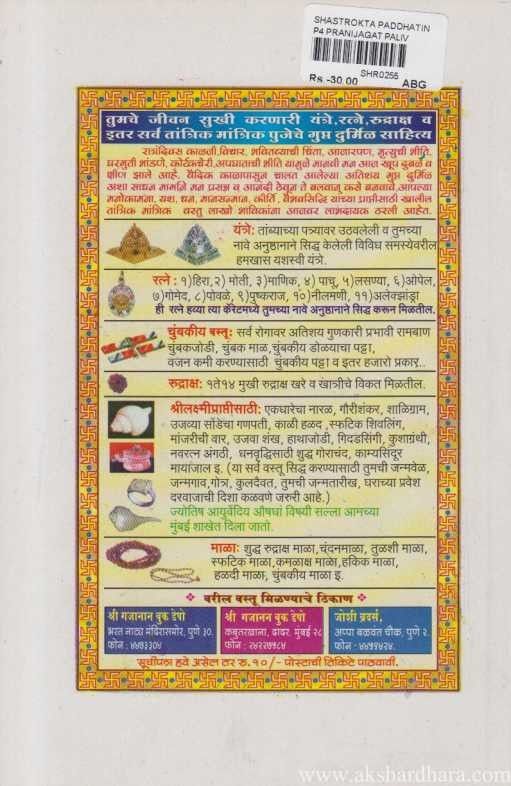 SHASTROKTA PADDHATIN
P4 PRANIJAGAT PALIV
SHR0255
Rs.-30.00 ABG
तुमचे जीवन सुखी करणारी यंत्रे,रत्ने,रुद्राक्ष व
इतर सर्व तांत्रिक मांत्रिक पुजेचे गुप्त दुर्मिळ साहित्य
रात्रंदिवस काळजी,विचार, भवितव्याची चिंता, आजारपण, मृत्युची भीति.
घरगुती भांडणे, कोर्टकचेरी,अपघाताची भीति यामुळे मानवी मन आज खूप दुबळे व
क्षीण झाले आहे. वैदिक काळापासून चालत आलेल्या अतिशय गुप्त दुर्मिळ
अशा साधन मार्गाने मन प्रसन्न व आनंदी ठेवून ते बलवान् कसे बनवावे.आपल्या
मनोकामना, यश, धन, मानसन्मान, कीर्ति, वैभवसिद्धि यांच्या प्राप्तीसाठी खालील
तांत्रिक मांत्रिक वस्तु लाखो भाविकांना आजवर लाभदायक ठरली आहेत.
यंत्रे: तांब्याच्या पत्र्यावर उठवलेली व तुमच्या
नावे अनुष्ठानाने सिद्ध केलेली विविध समस्येवरील
हमखास यशस्वी यंत्रे.
रत्ने : १)हिरा,२) मोती, ३)माणिक, ४) पाचू, ५)लसण्या, ६)ओपेल,
७)गोमेद, ८)पोवळे, ९)पुष्कराज, १०)नीलमणी, ११)अलेक्झांड्रा
ही रत्ने हव्या त्या कॅरेटमध्ये तुमच्या नावे अनुष्ठानाने सिद्ध करून मिळतील.
चुंबकीय वस्तू: सर्व रोगावर अतिशय गुणकारी प्रभावी रामबाण
चुंबकजोडी, चुंबक माळ,चुंबकीय डोळ्याचा पट्टा,
वजन कमी करण्यासाठी चुंबकीय पट्टा व इतर हजारो प्रकार..
रुद्राक्ष: १ते१४ मुखी रुद्राक्ष खरे व खात्रीचे विकत मिळतील.
श्रीलक्ष्मीप्राप्तीसाठी: एकधारेचा नारळ, गौरीशंकर, शाळिग्राम,
उजव्या सोंडेचा गणपती, काळी हळद ,स्फटिक शिवलिंग,
मांजरीची वार, उजवा शंख, हाथाजोडी, गिदडसिंगी, कुशाग्रंथी,
नवरत्न अंगठी, धनवृद्धिसाठी शुद्ध गोराचंद, काम्यसिंदूर
मायाजाल इ. (या सर्व वस्तू सिद्ध करण्यासाठी तुमची जन्मवेळ,
जन्मगाव,गोत्र, कुलदैवत, तुमची जन्मतारीख, घराच्या प्रवेश
दरवाजाची दिशा कळवणे जरुरी आहे.)
ज्योतिष आयुर्वेदिय औषधां विषयी सल्ला आमच्या
मुंबई शाखेत दिला जातो.
माळा: शुद्ध रुद्राक्ष माळा,चंदनमाळा, तुळशी माळा,
स्फटिक माळा,कमळाक्ष माळा,हकिक माळा,
हळदी माळा, चुंबकीय माळा इ.
वरील वस्तू मिळण्याचे ठिकाण
श्री गजानन बुक डेपो
भरत नाट्य मंदिरासमोर, पुणे ३०.
फोन : ४४७३३०४
श्री गजानन बुक डेपो
कबुतरखाना, दादर, मुंबई २८
फोन : २४२२७५८४
जोशी ब्रदर्स,
अप्पा बळवंत चौक, पुणे २.
फोन -४४५९४२४.
सूचीपत्रा हवे असेल तर रु.१०/- पोस्टाची तिकिटे पाठवावी.
www.akshardhara.com